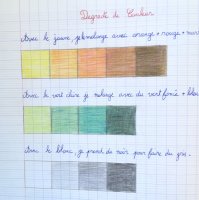 Dégradé de Couleur
Avec le jaune, je mélange avec orange + rouge + noir
Avec le vert claire je mélange avec du vert foncé + bleu
Avec le blanc, je prend du noir pour faire du gris.